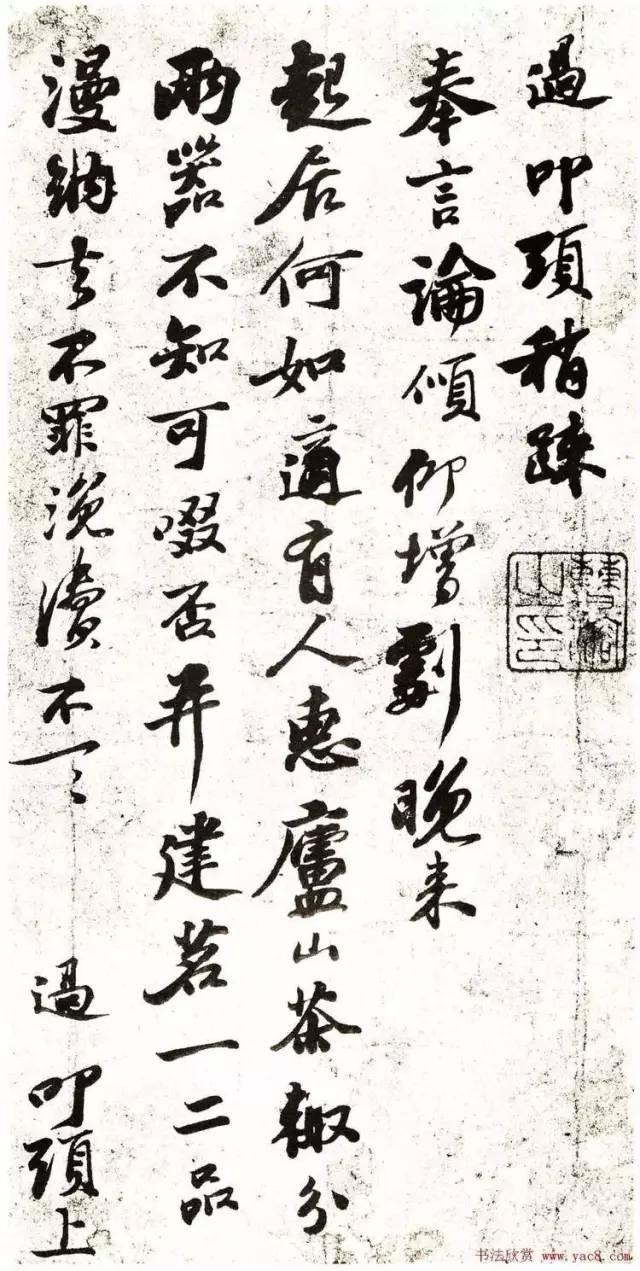 過叩頭稍踈
奉言論傾仰增劇晚来
起居何如適有人惠廬山茶輒分
兩器不知可啜否并建茗一二品
漫納去不罪浼瀆不一々 過 叩頭上
书法欣赏 www.yac8.com